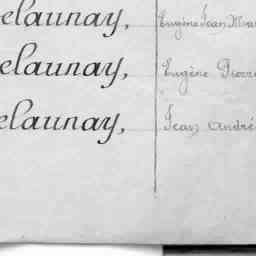 elaunay, Eugène Jean Mar
elaunay, Eugène Pierre
elaunay, Jean André